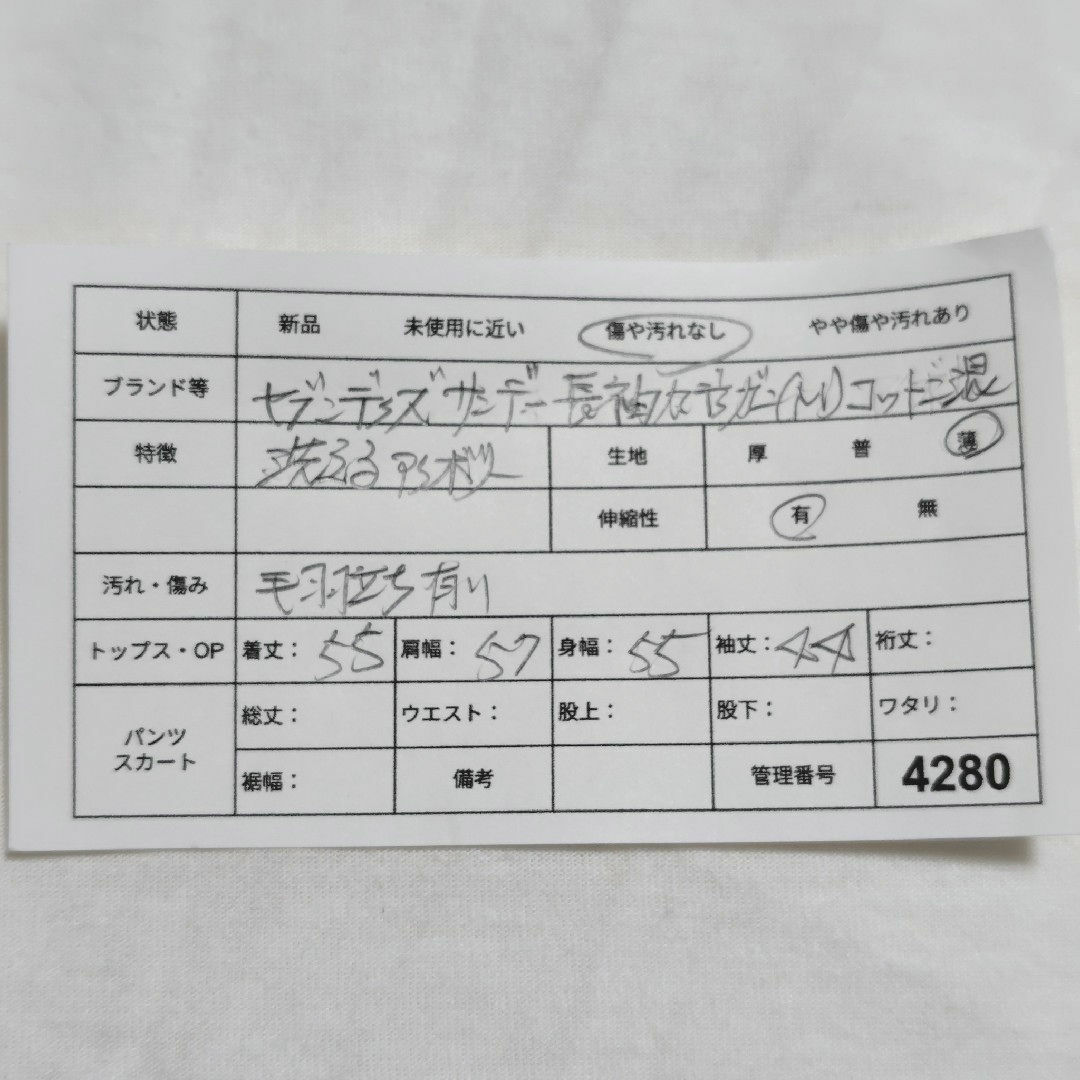 状態 新品 未使用に近い 傷や汚れなし やや傷や汚れあり
ブランド等 セブンデイズサンデー 長袖 (M) コットン混
特徴 洗える 生地 厚 普 薄
伸縮性 有 無
汚れ・傷み 毛羽立ち有り
トップス・OP 着丈: 55 肩幅: 57 身幅: 55 袖丈: 44 裄丈:
パンツ スカート 総丈: ウエスト: 股上: 股下: ワタリ:
裾幅: 備考 管理番号 4280